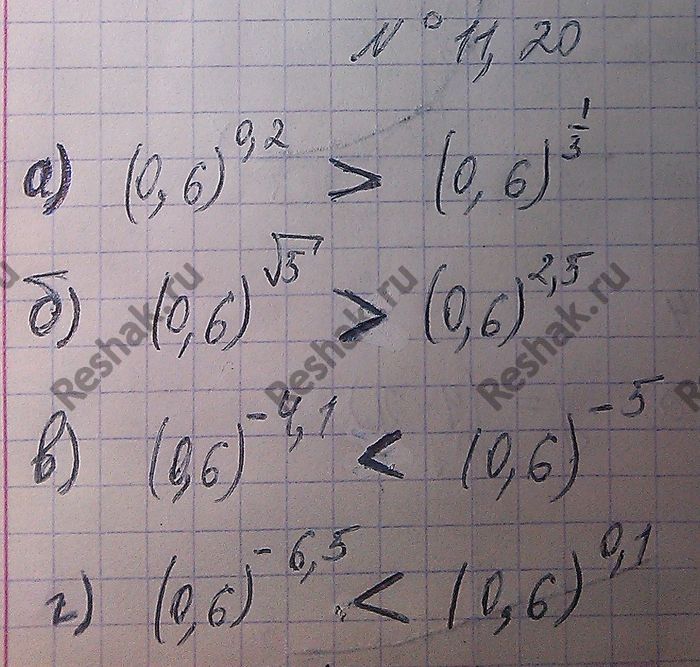 № 11,20
а) (0,6)^0,2 > (0,6)^1/3
б) (0,6)^√5 > (0,6)^2,5
в) (0,6)^-4,1 < (0,6)^-5
г) (0,6)^-6,5 < (0,6)^0,1
Reshak.ru
Reshak.ru
Reshak.ru